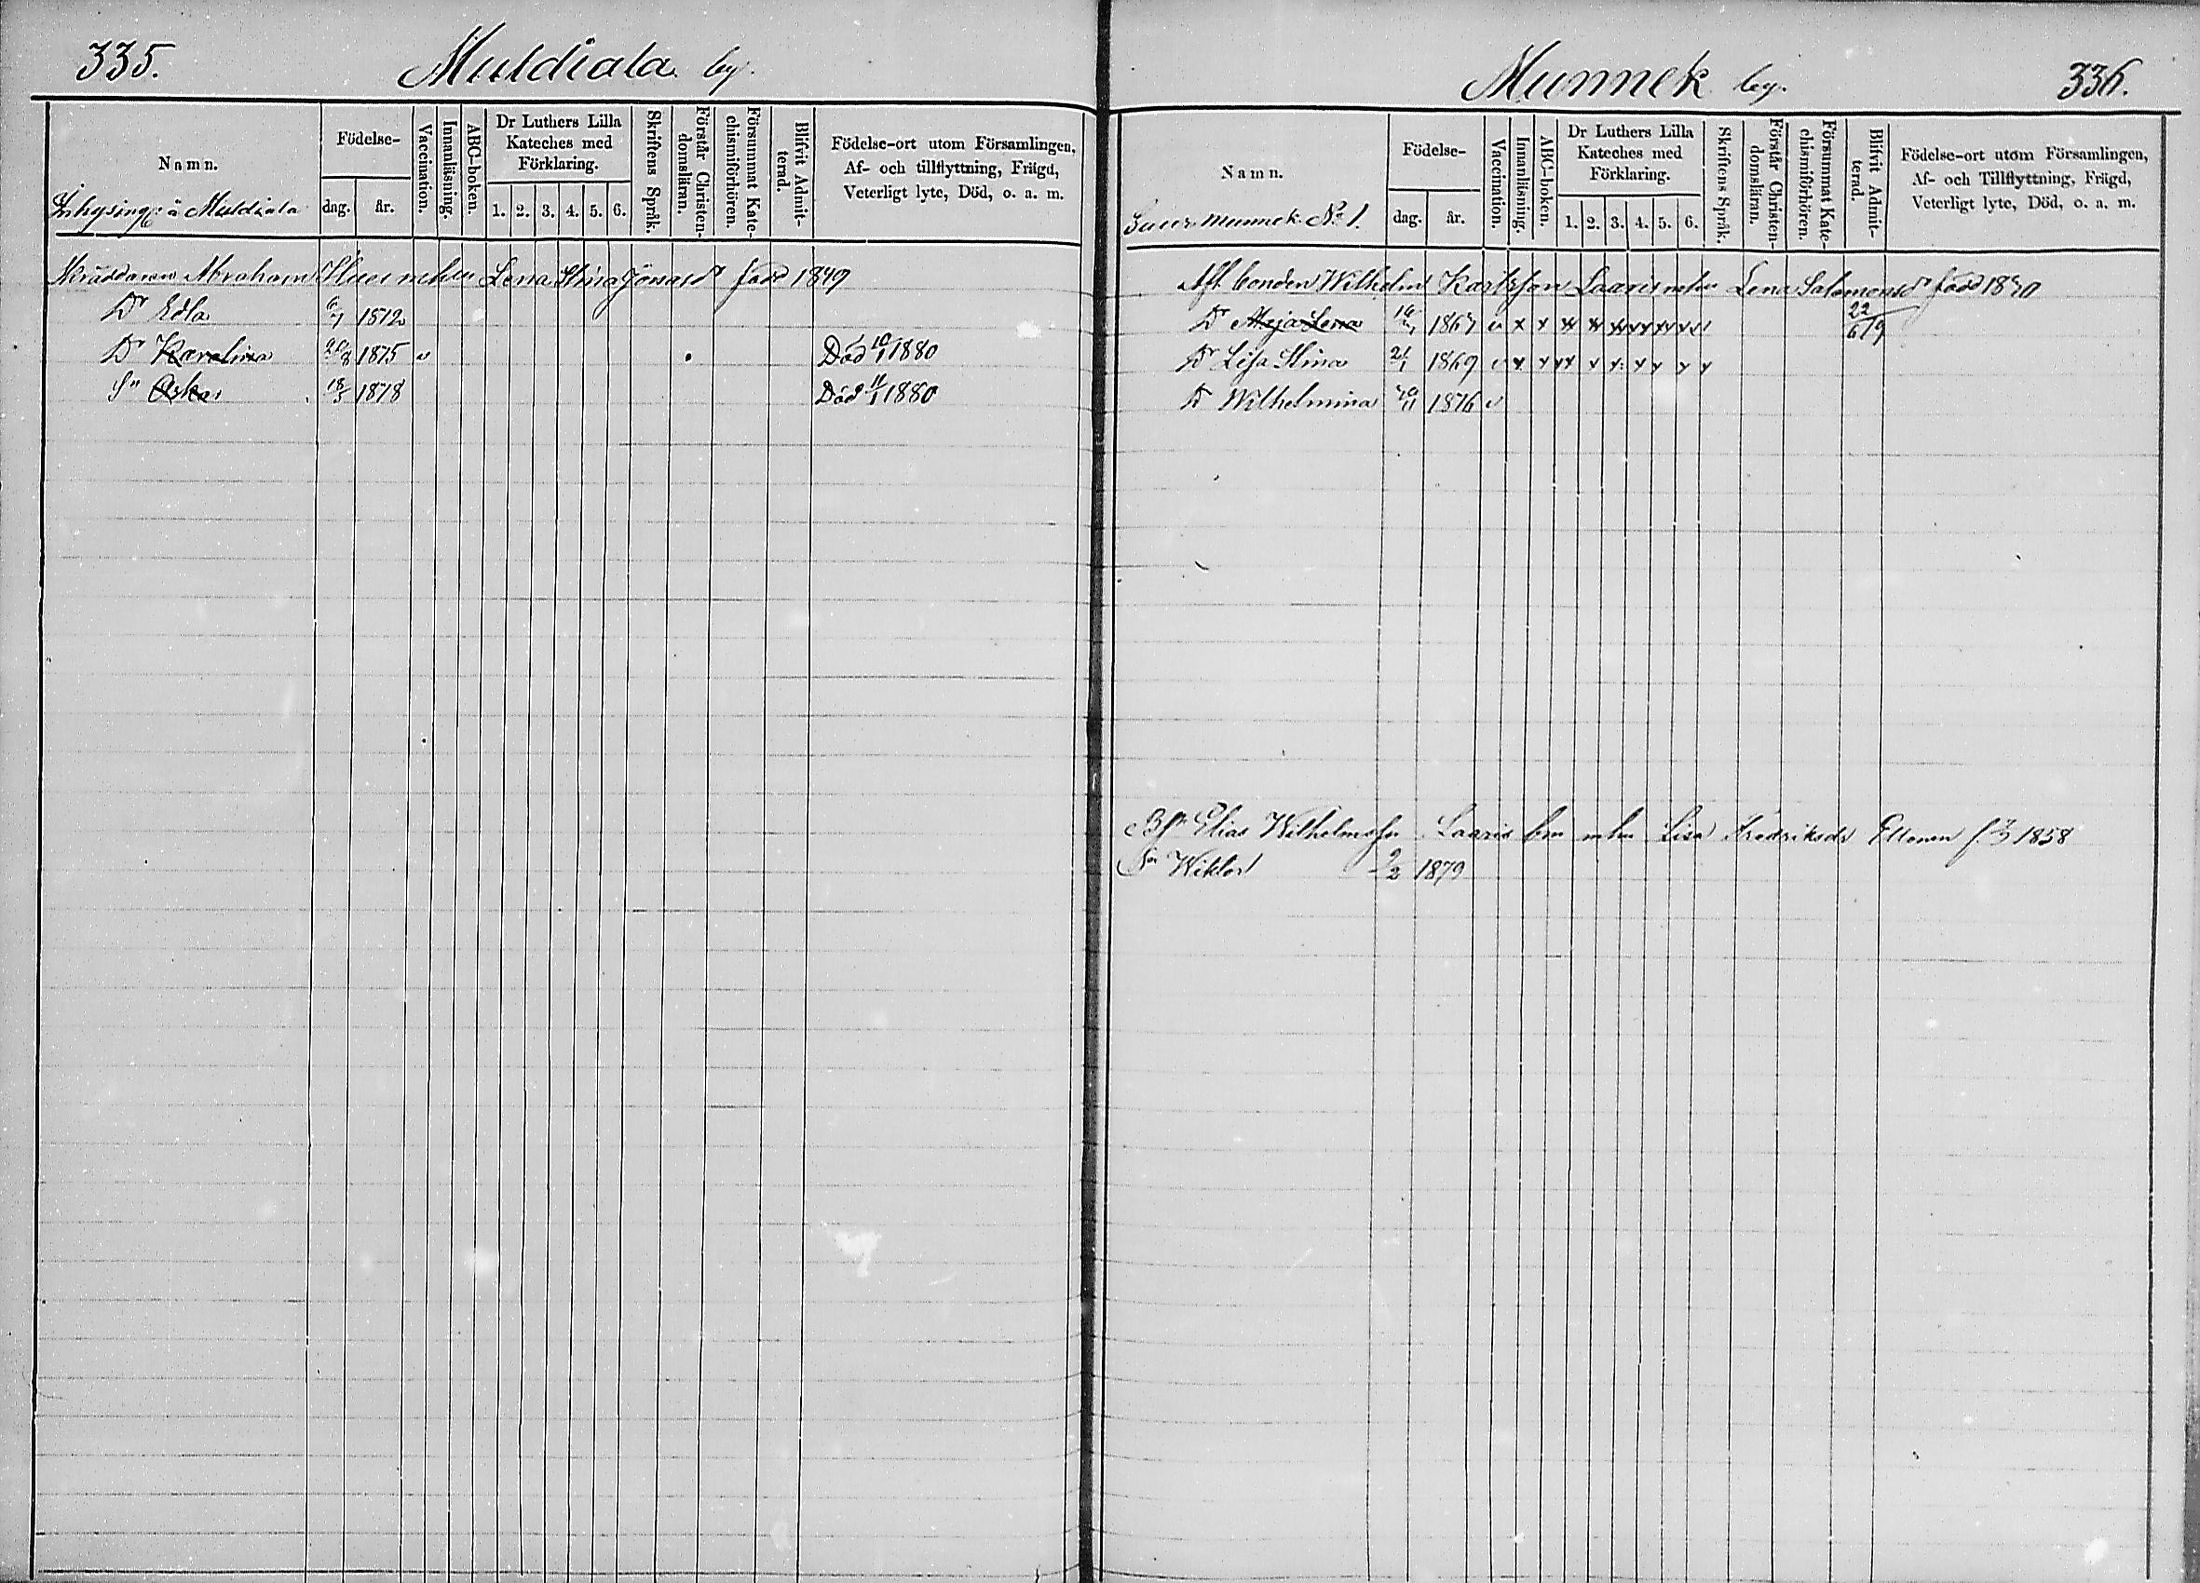 335.
Muldiala by.
Namn.
Födelse-
dag. år.
Vaccination.
Innanläsning.
ABC-boken.
Dr Luthers Lilla
Kateches med
Förklaring.
1. 2. 3. 4. 5. 6.
Skriftens Språk.
Förstår Christen-
domsläran.
Försummat Kate-
chismiförhören.
Blifvit Admit-
terad.
Födelse-ort utom Församlingen,
Af- och tillflyttning, Frägd,
Veterligt lyte, Död, o. a. m.
Inhysing: å Muldiala
Skräddaren Abraham mhu Lena Stina Jonasdr född 1849
Dr Edla 6/1 1872
Dr Karolina 1875 v Död 10/1 1880
Sn Oskar 18/3 1878 Död 11/1 1880
Munnek by.
336.
Namn.
Födelse-
dag. år.
Vaccination.
Innanläsning.
ABC-boken.
Dr Luthers Lilla
Kateches med
Förklaring.
1. 2. 3. 4. 5. 6.
Skriftens Språk.
Förstår Christen-
domsläran.
Försummat Kate-
chismiförhören.
Blifvit Admit-
terad.
Födelse-ort utom Församlingen,
Af- och Tillflyttning, Frägd,
Veterligt lyte, Död, o. a. m.
Munnek No 1.
Afl. bonden Wilhelm Karlsson Laaris mhu Lena Salomonsdr född
Dr Maja Lena 1867 v x x 22/6 19
Dr Lisa Stina 21/1 1869 v x x
Dr Wilhelmina 1876 v
BSn Elias Wilhelmsson Laaris bm mhu Lisa Fredriksdr Ellonen f. 1858
Sn Wiktor 9/2 1879